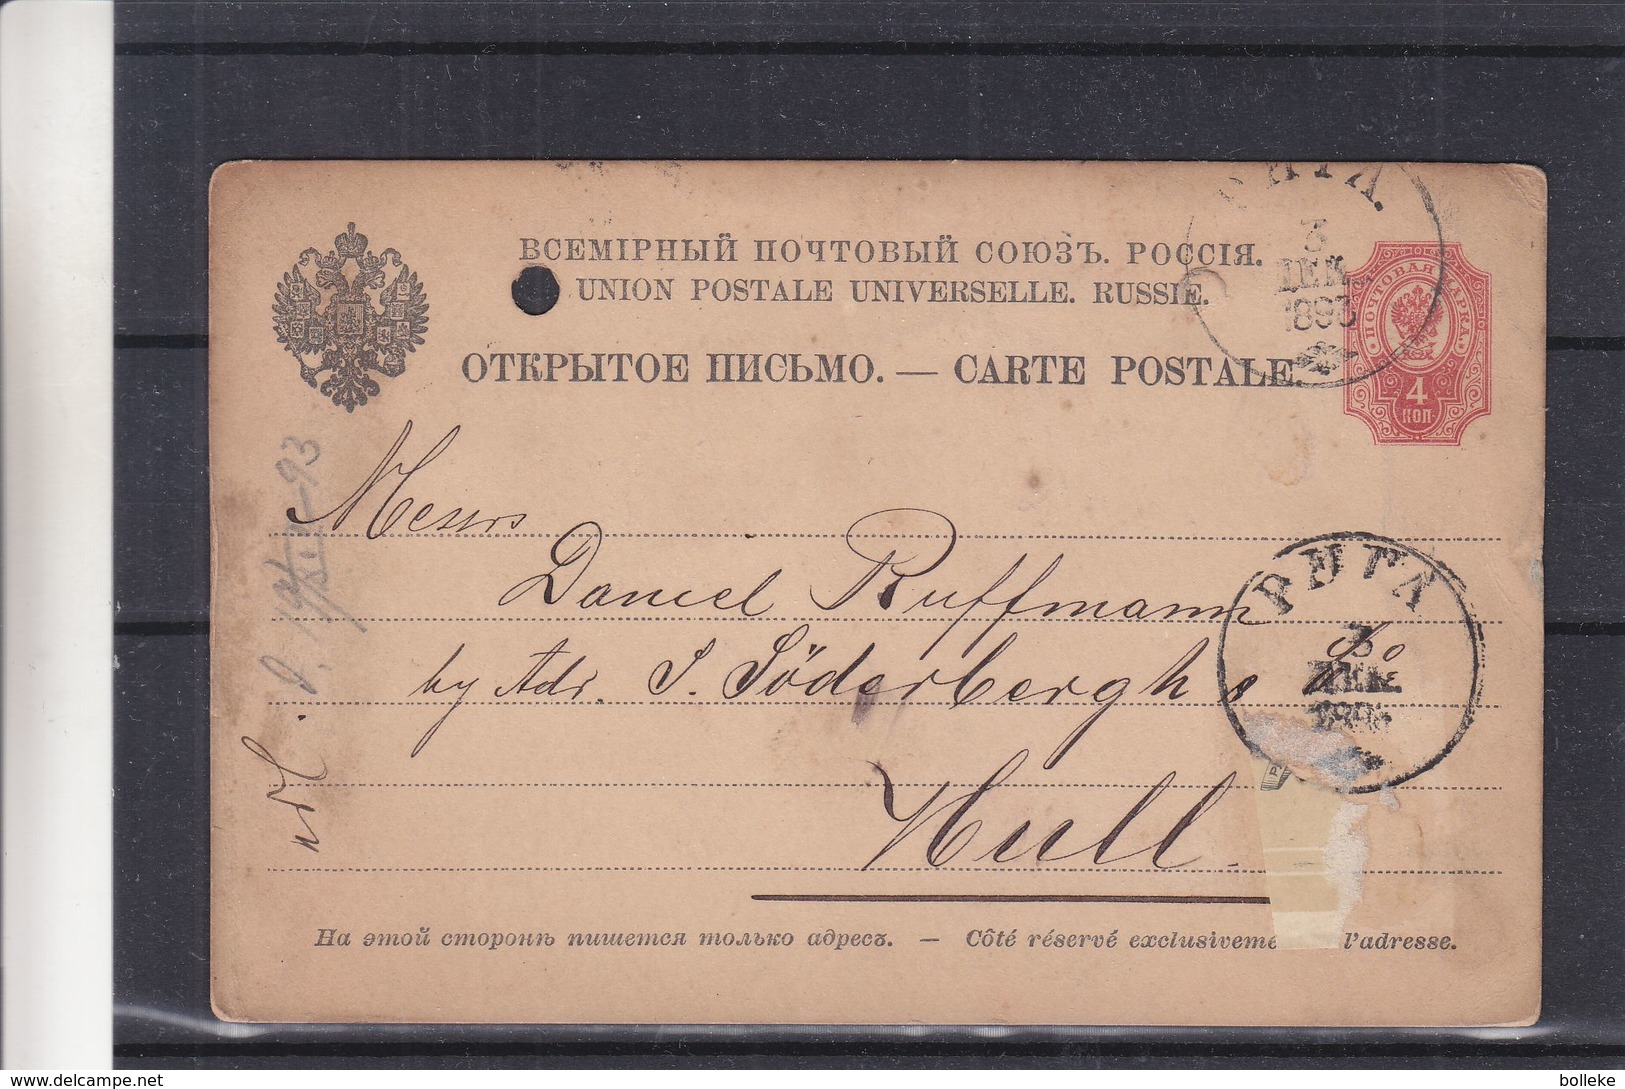 ВСЕМІРНЫЙ ПОЧТОВЫЙ СОЮЗЪ. РОССІЯ.
UNION POSTALE UNIVERSELLE. RUSSIE.
ОТКРЫТОЕ ПИСЬМО. — CARTE POSTALE.
РИГА.
3
ДЕК.
1893
ПОЧТОВАЯ МАРКА
4
КОП.
Messrs
Daniel Ruffmann
by Adr. S. Söderbergh & Co
Hull
РИГА
3
ДЕК.
1893
На этой сторонѣ пишется только адресъ. — Côté réservé exclusiveme l'adresse.
delcampe.net
bolleke